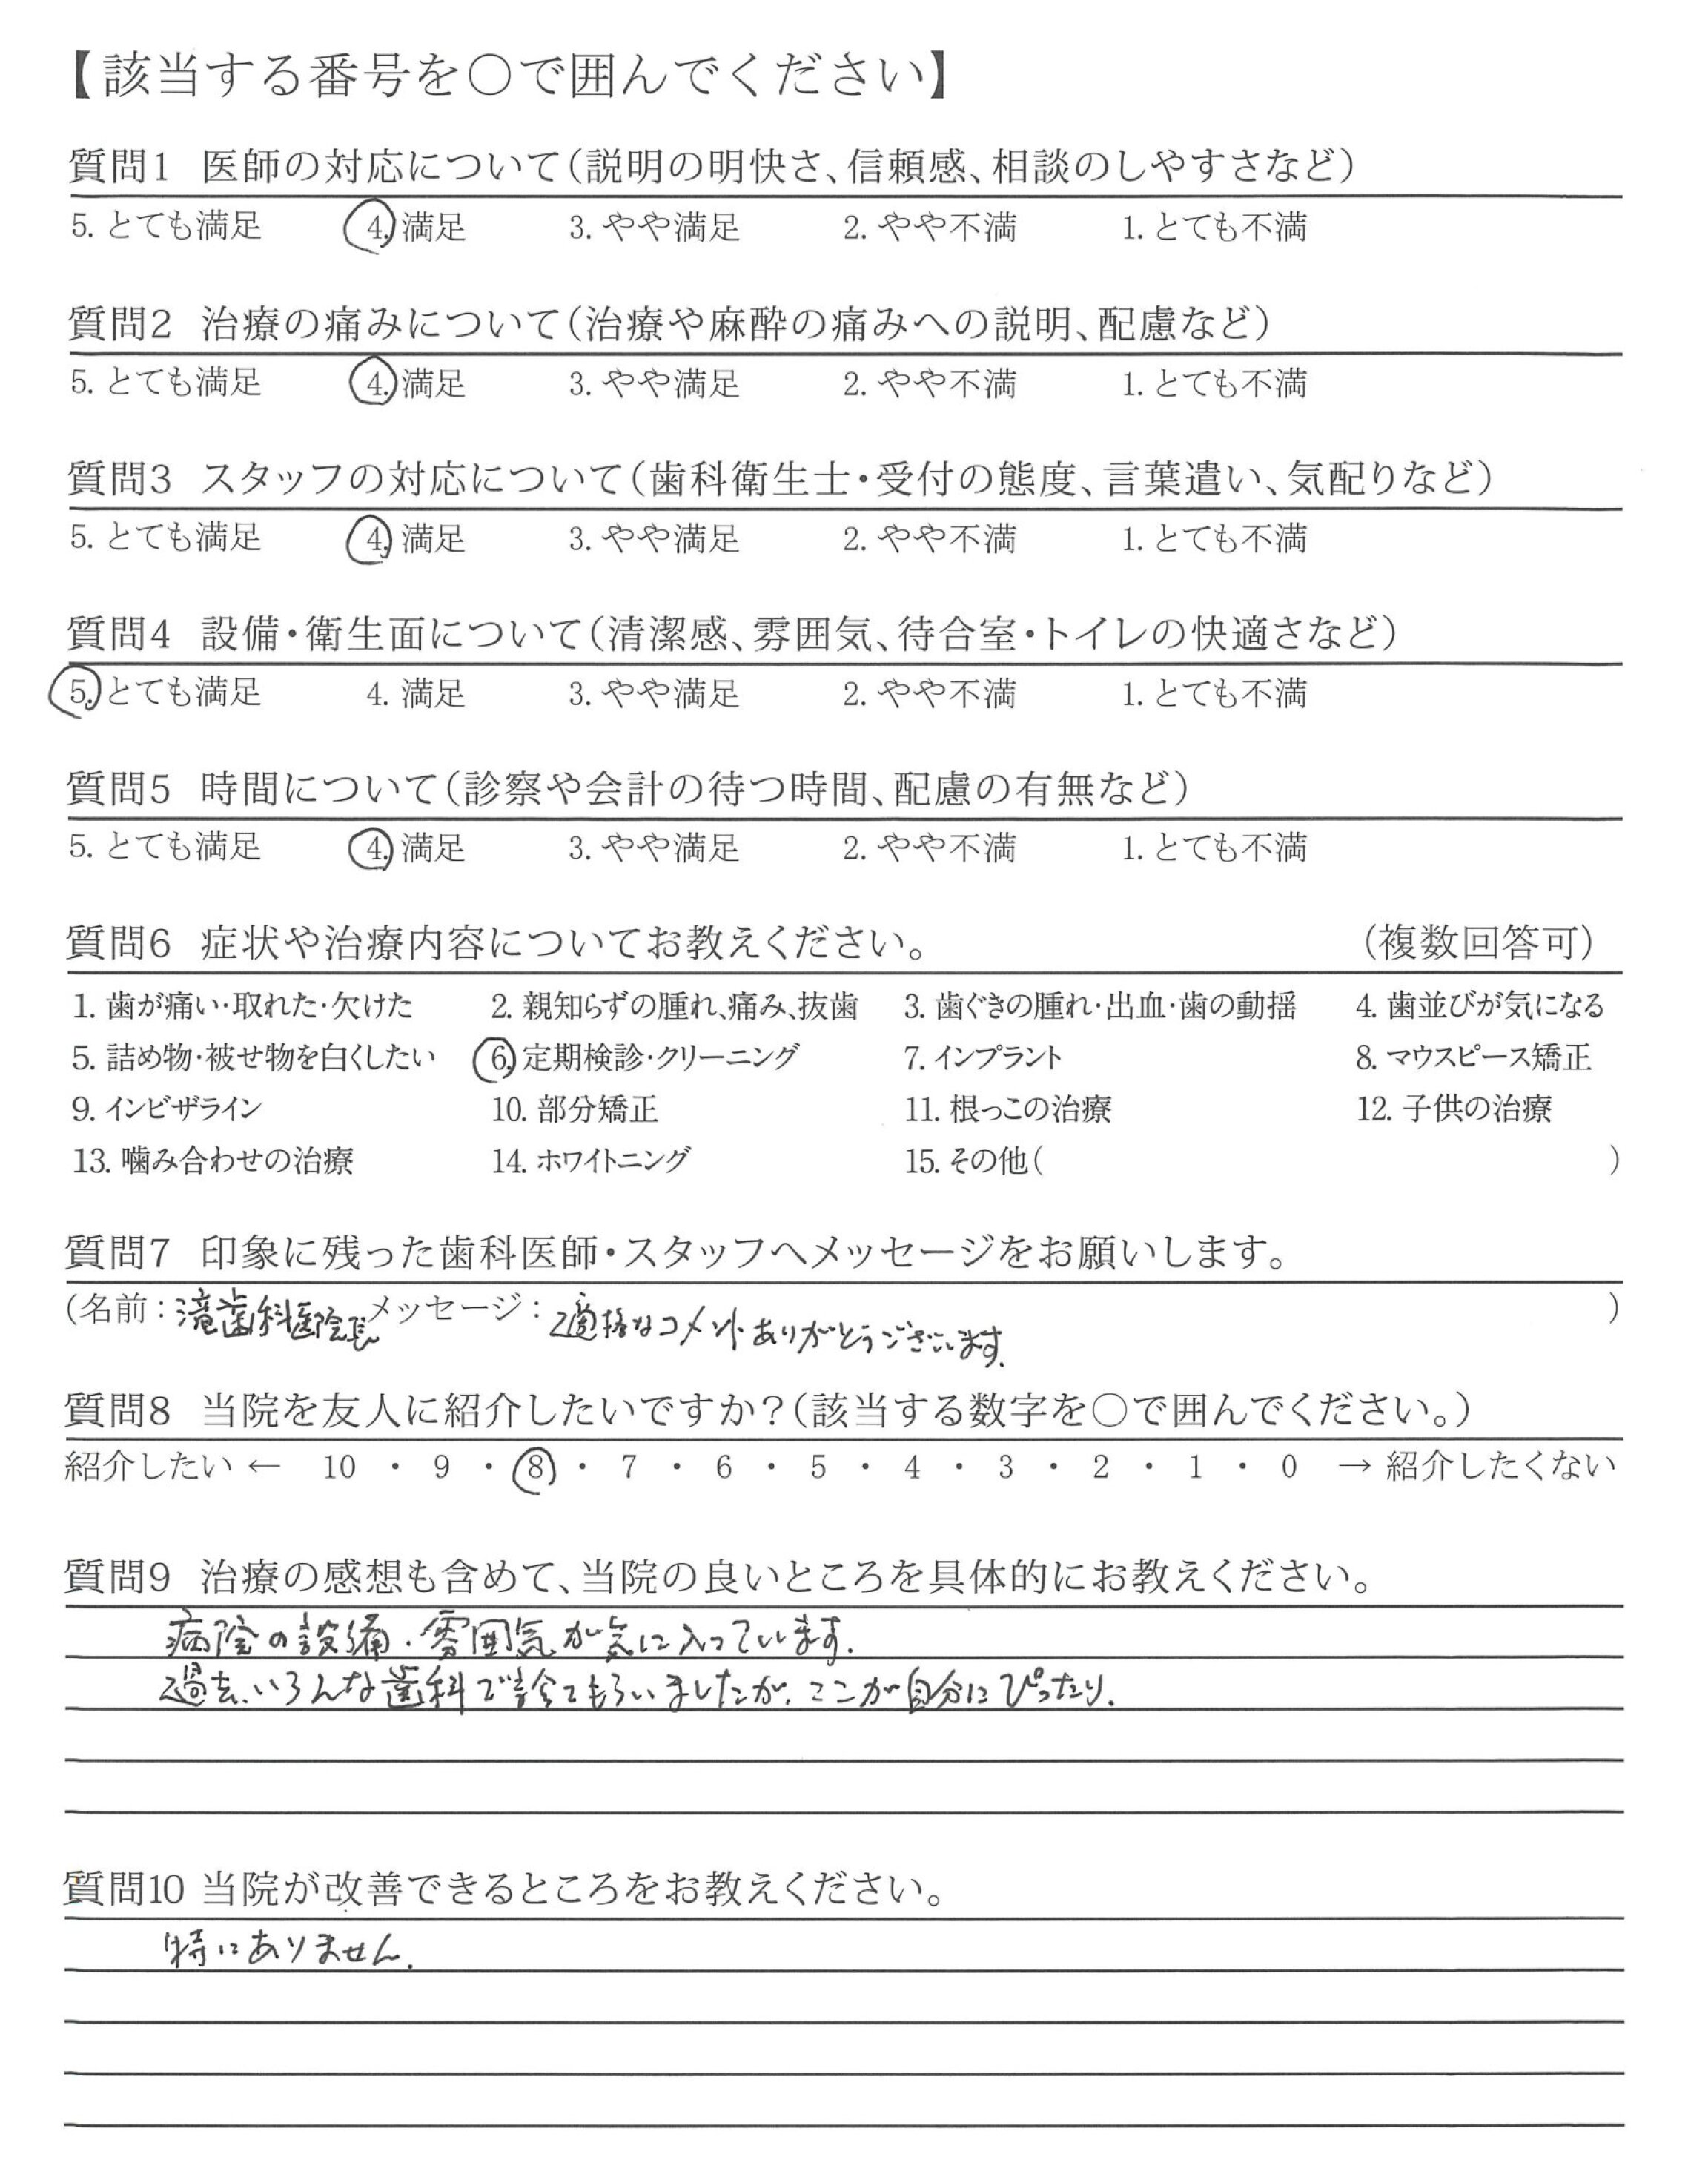 【該当する番号を○で囲んでください】
質問1 医師の対応について(説明の明快さ、信頼感、相談のしやすさなど)
5. とても満足 4. 満足 3. やや満足 2. やや不満 1. とても不満
質問2 治療の痛みについて(治療や麻酔の痛みへの説明、配慮など)
5. とても満足 4. 満足 3. やや満足 2. やや不満 1. とても不満
質問3 スタッフの対応について(歯科衛生士・受付の態度、言葉遣い、気配りなど)
5. とても満足 4. 満足 3. やや満足 2. やや不満 1. とても不満
質問4 設備・衛生面について(清潔感、雰囲気、待合室・トイレの快適さなど)
5. とても満足 4. 満足 3. やや満足 2. やや不満 1. とても不満
質問5 時間について(診察や会計の待つ時間、配慮の有無など)
5. とても満足 4. 満足 3. やや満足 2. やや不満 1. とても不満
質問6 症状や治療内容についてお教えください。 (複数回答可)
1. 歯が痛い・取れた・欠けた 2. 親知らずの腫れ、痛み、抜歯 3. 歯ぐきの腫れ・出血・歯の動揺 4. 歯並びが気になる
5. 詰め物・被せ物を白くしたい 6. 定期検診・クリーニング 7. インプラント 8. マウスピース矯正
9. インビザライン 10. 部分矯正 11. 根っこの治療 12. 子供の治療
13. 噛み合わせの治療 14. ホワイトニング 15. その他( )
質問7 印象に残った歯科医師・スタッフへメッセージをお願いします。
(名前:滝歯科医院長 メッセージ:適格なコメントありがとうございます. )
質問8 当院を友人に紹介したいですか?(該当する数字を○で囲んでください。)
紹介したい ← 10 ・ 9 ・ 8 ・ 7 ・ 6 ・ 5 ・ 4 ・ 3 ・ 2 ・ 1 ・ 0 → 紹介したくない
質問9 治療の感想も含めて、当院の良いところを具体的にお教えください。
病院の設備・雰囲気が気に入っています.
過去、いろんな歯科で診てもらいましたが、ここが自分にぴったり.
質問10 当院が改善できるところをお教えください。
特にありません.